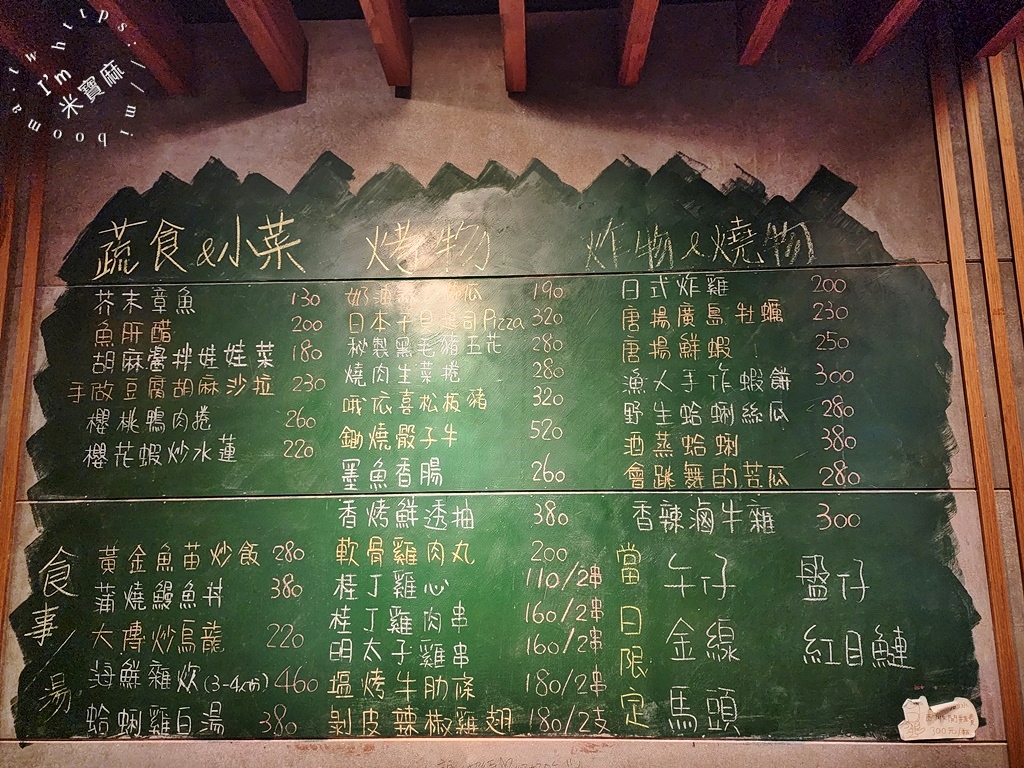 https://mibooma.tw
I'm
米寶麻
蔬食&小菜
芥末章魚 130
魚肝醋 200
胡麻醬拌娃娃菜 180
手改豆腐胡麻沙拉 230
櫻桃鴨肉捲 260
櫻花蝦炒水蓮 220
食事/湯
黃金魚苗炒飯 280
蒲燒鰻魚丼 380
大磚炒烏龍 220
海鮮雜炊(3-4人份) 460
蛤蜊雞白湯 380
烤物
奶油 瓜 190
日本干貝起司Pizza 320
秘製黑毛豬五花 280
燒肉生菜捲 280
哦依喜松板豬 320
鋤燒骰子牛 520
墨魚香腸 260
香烤鮮透抽 380
軟骨雞肉丸 200
桂丁雞心 110/2串
桂丁雞肉串 160/2串
明太子雞串 160/2串
塩烤牛肋條 180/2串
剝皮辣椒雞翅 180/2支
炸物&燒物
日式炸雞 200
唐揚廣島牡蠣 230
唐揚鮮蝦 250
漁人手作蝦餅 300
野生蛤蜊絲瓜 280
酒蒸蛤蜊 380
會跳舞的苦瓜 280
香辣滷牛雜 300
當日限定
午仔 盤仔
金線 紅目鰱
馬頭
300元/